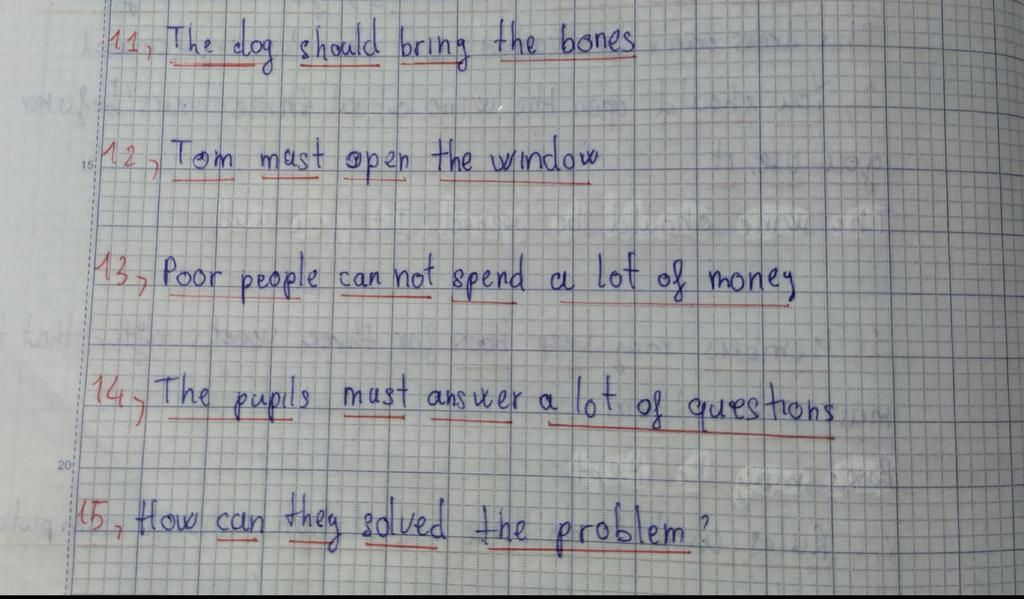 11, The dog should bring the bones
15
12, Tom must open the window
13, Poor people can not spend a lot of money
14, The pupils must answer a lot of questions
20
15, How can they solved the problem?